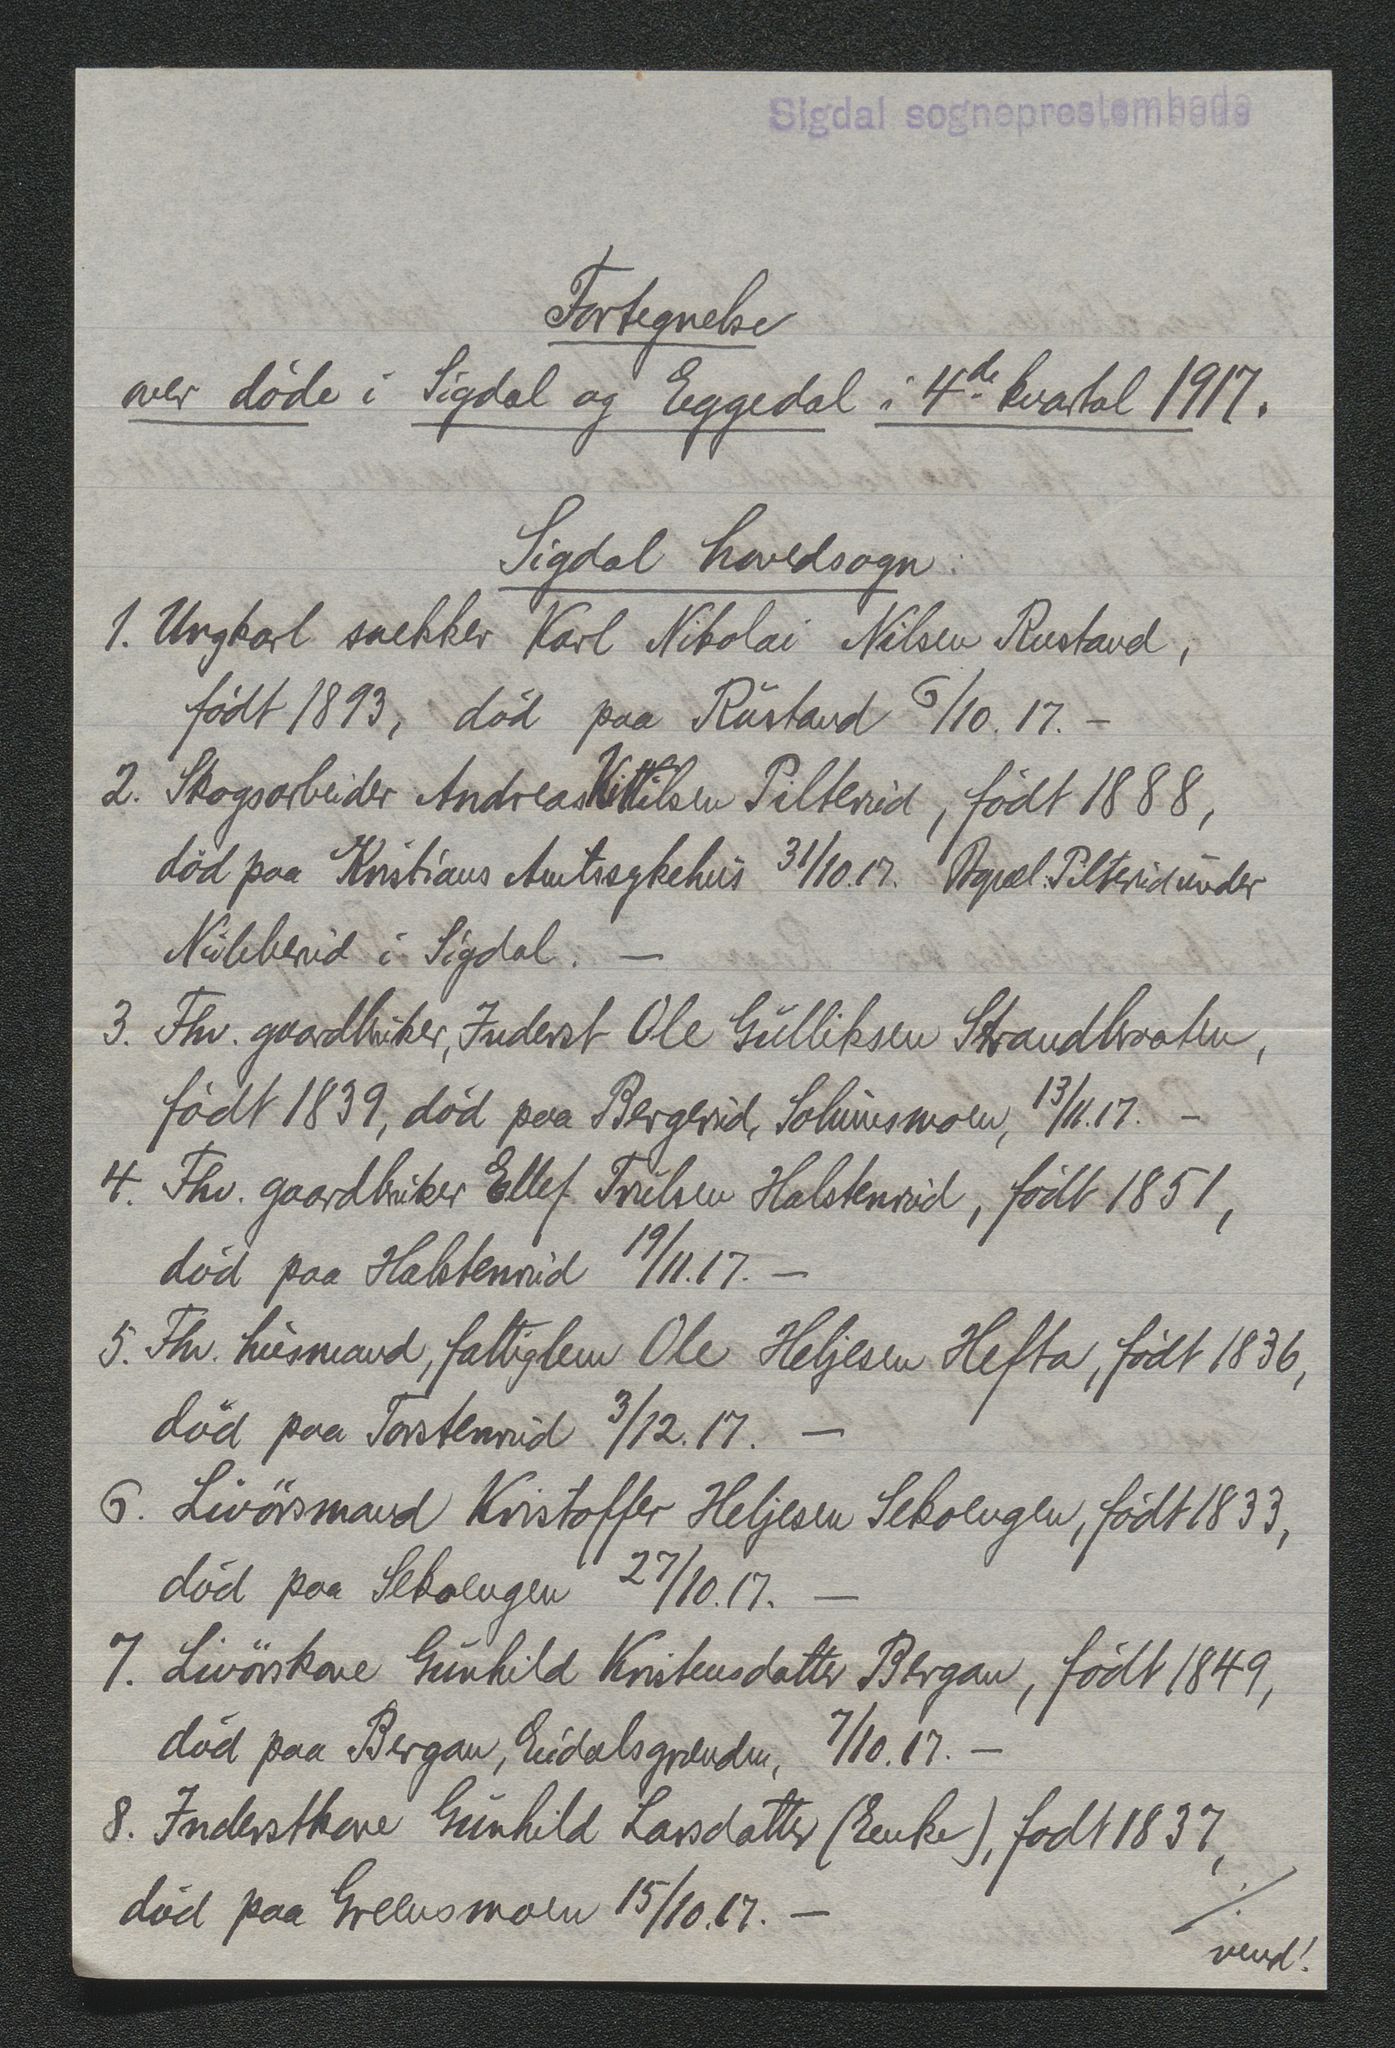 Sigdal sogneprestembede
Fortegnelse
over døde i Sigdal og Eggedal i 4de kvartal 1917.
Sigdal hovedsogn:
1. Ungkarl snekker Karl Nikolai Nilsen Rustand,
født 1893, død paa Rustand 6/10.17. –
2. Skogsarbeider Andreas Kittilsen Pilterud, født 1888,
død paa Kristians Amtssykehus 31/10.17. Bopæl: Pilterud under
Nubberud i Sigdal. –
3. Fhv. gaardbruker, Inderst Ole Gulliksen Strandbraaten,
født 1839, død paa Bergerud, Solumsmoen, 13/11.17. –
4. Fhv. gaardbruker Ellef Trulsen Halstenrud, født 1851,
død paa Halstenrud 19/11.17. –
5. Fhv. husmand, fattiglem Ole Heljesen Hefta, født 1836,
død paa Torstenrud 3/12.17. –
6. Livørsmand Kristoffer Heljesen Sekoengen, født 1833,
død paa Sekoengen 27/10.17. –
7. Livørskone Gunhild Kristensdatter Bergan, født 1849,
død paa Bergan, Eidalsgrænden, 7/10.17. –
8. Inderstkone Gunhild Larsdatter (Enke), født 1837,
død paa Greensmoen 15/10.17. –
./.
vend!